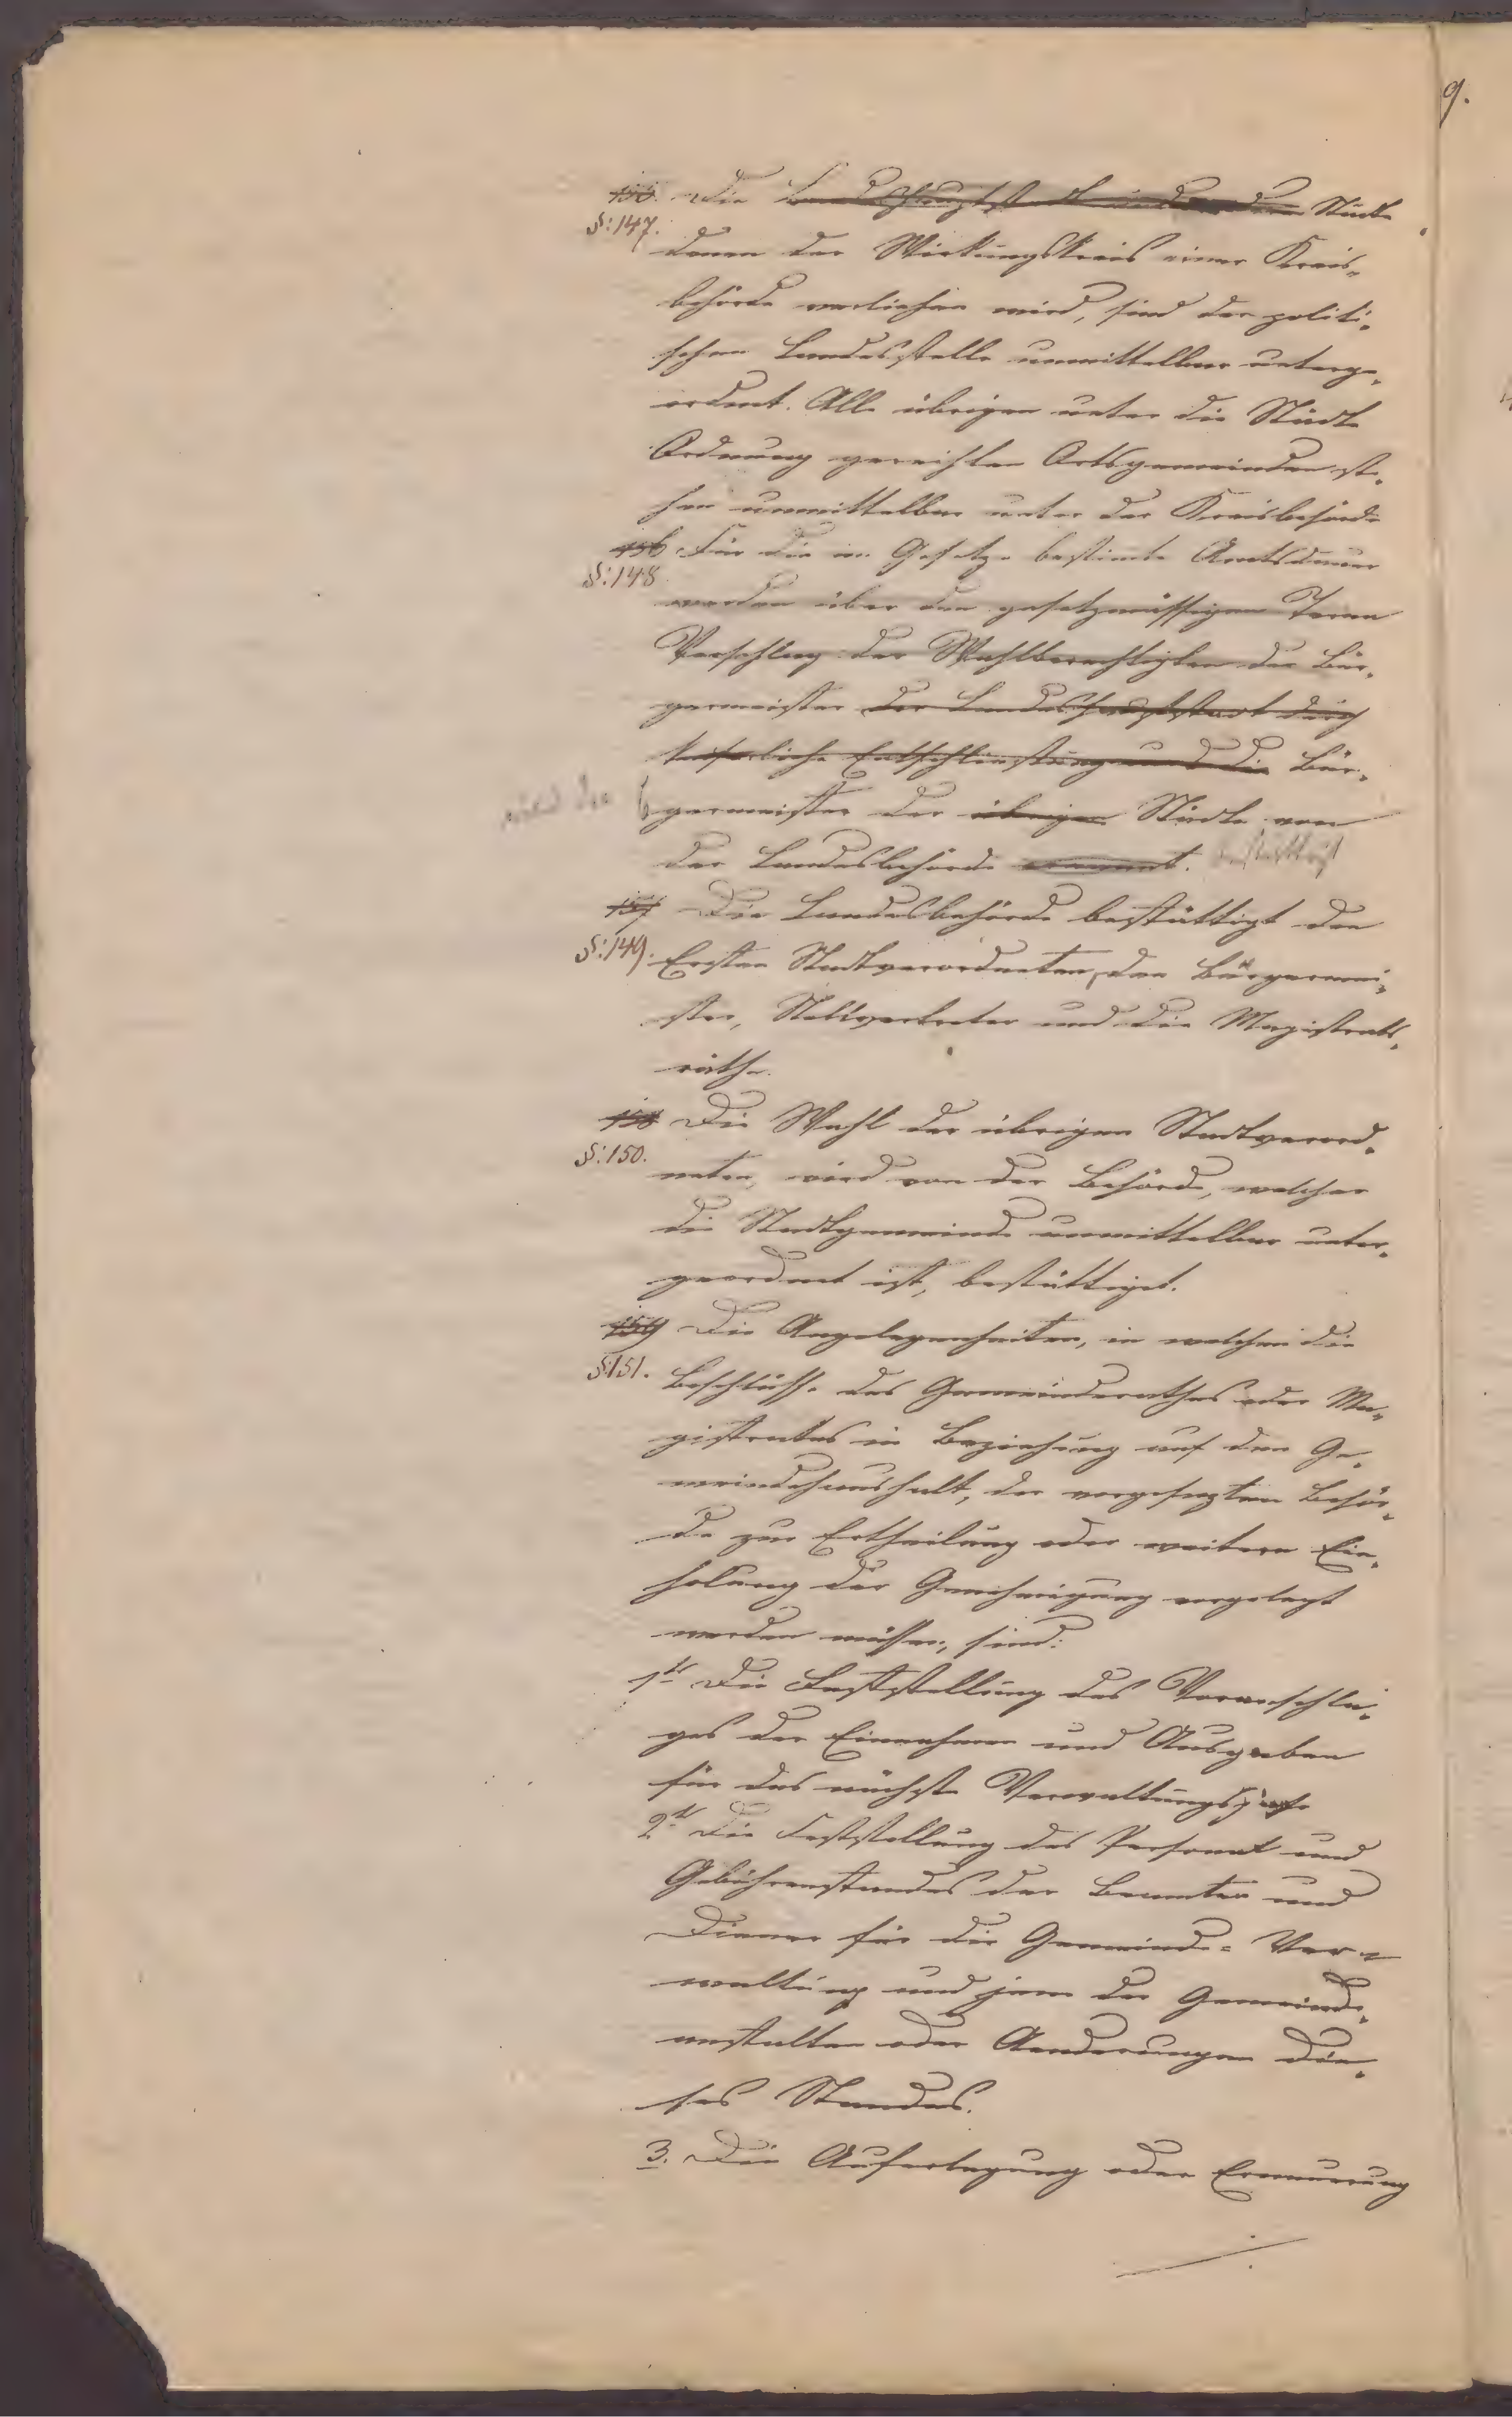 9.
155. Die Landeshauptstadt und andere Städte
§: 147.
denen der Wirkungskreis einer Kreis-
behörde verliehen wird, sind der politi-
schen Landesstelle unmittelbar unterge-
ordnet. Alle übrigen unter die Städte
Ordnung gereihten Ortsgemeinden ste-
hen unmittelbar unter der Kreisbehörde
156 Für die im Gesetze bestimte Amtsdauer
§: 148
werden über den gesetzmässigen Terna
Vorschlag der Wahlberechtigten der Bür-
germeister der Landeshauptstadt durch
kaiserliche Entschliessung und die Bür-
wird der
germeister der übrigen Städte von
der Landesbehörde ernannt. bestättigt
157 Die Landesbehörde bestättigt den
§: 149.
Ersten Stadtverordneten, den Bürgermei-
ster, Stellvertreter und die Magistrats-
räthe.
158 Die Wahl der übrigen Stadtverord-
§: 150.
neten, wird von der Behörde, welcher
die Stadtgemeinde unmittelbar unter-
geordnet ist, bestättiget.
159 Die Angelegenheiten, in welchen die
§: 151.
Beschlüsse des Gemeinderathes oder Ma-
gistrates in Beziehung auf den Ge-
meindehaushalt, der vorgesezten Behör-
de zur Ertheilung oder weitern Ein-
holung der Genehmigung vorgelegt
werden müssen, sind:
1tens Die Feststellung des Voranschla-
ges der Einnahmen und Ausgaben
für das nächste Verwaltungsjahr
2tens Die Feststellung des Personal und
Gebührenstandes der Beamten und
Diener für die Gemeinde-Ver-
waltung und jene der Gemeinde-
anstalten oder Aenderungen die-
ses Standes.
3. Die Auferlegung oder Erneuerung